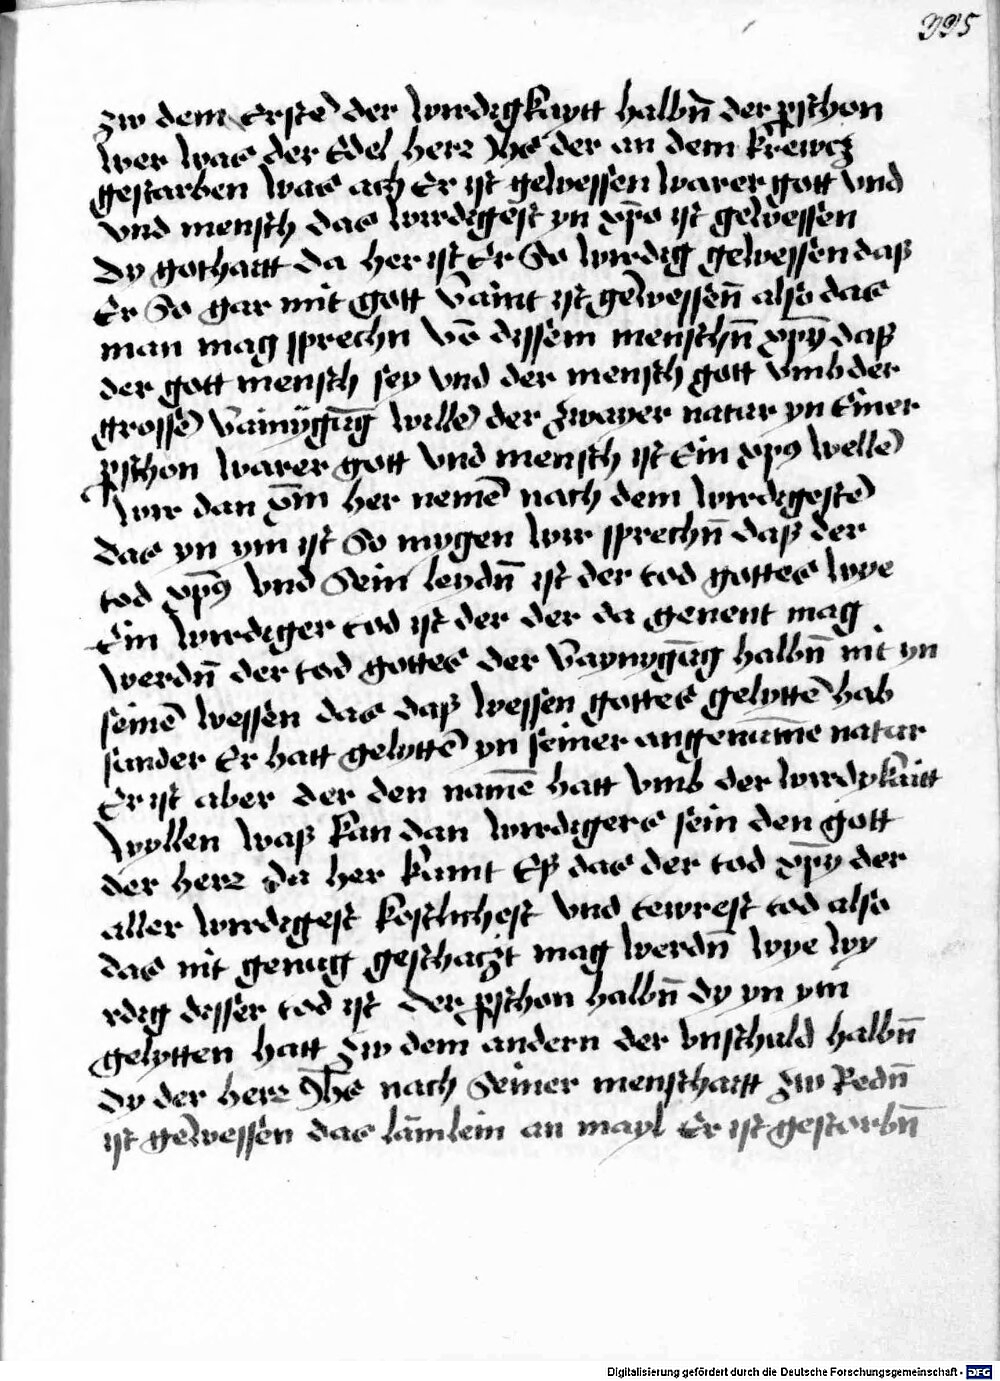 395
zw dem Erstē der wirdigkaytt halbn̄ der p̱schon
wer was der Edel herr Jhs der an dem krewcz
gestarben was ach Er ist gewessen warer gott vnd
vnd mensch das wirdigest yn xp̄o ist gewessen
dy gothaitt da her ist Er So wirdig gewessen daß
Er So gar mit gott Vaint ist gewessen̄ also das
man mag sprechn vō dissem menschn̄ xp̄ȳ daß
der gott mensch sey vnd der mensch gott vmb der
grossē Vainÿgūg willē der zwayer natur yn Einer
p̱schon warer gott vnd mensch ist Ein xp̄9 wellē
wir dan xp̄m her nemē nach dem wirdigestē
das yn ym ist So mygen wir sprechn̄ daß der
tod xp̄9 vnd Sein leydn̄ ist der tod gottes wye
Ein wirdiger tod ist der der da genent mag
werdn̄ der tod gottes der Vaynygūg halbn̄ nit yn
seinē wessen das daß wessen gottes gelyttē hab
sunder Er hatt gelyttē yn seiner angenūmne natur
Er ist aber der den namē hatt vmb der wirdykaitt
wyllen waß kan dan wirdigers sein den gott
der herr da her kumt Eß das der tod xp̄ȳ der
aller wirdigest kostlichest vnd tewrest tod also
das nit genug geschaczt mag werdn̄ wye wy
rdig disser tod ist der p̱schon halbn̄ dy yn ym
gelytten hatt zw dem andern der vnschuld halbn̄
dy der herr Jh̄s nach Seiner menschaitt zw Redn̄
ist gewessen das lāmlein an mayl Er ist gestorbn̄
Digitalisierung gefördert durch die Deutsche Forschungsgemeinschaft - DFG